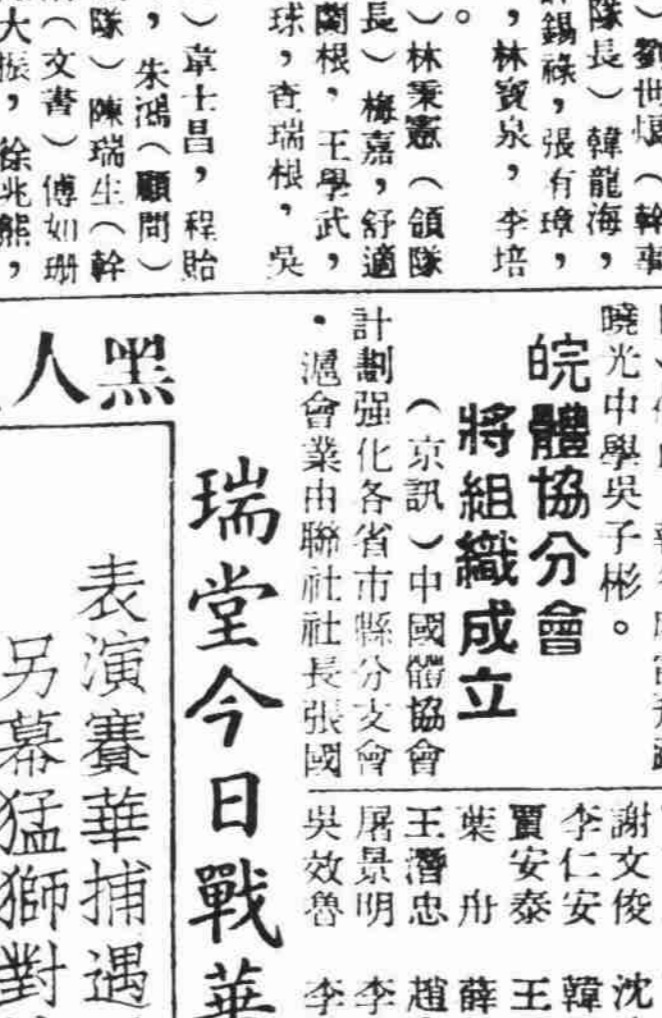 ）劉世堒（幹事
隊長）韓龍海，
錫祿，張有璋，
，林寶泉，李培
。
）林秉憲（領隊
長）梅嘉，舒適
蘭根，王學武，
球，查瑞根，吳
）韋士昌，程貽
，朱鴻（顧問）
隊）陳瑞生（幹
（文書）傅如珊
大振，徐兆熊，
曉光中學吳子彬。
皖體協分會
將組織成立
（京訊）中國體協會
計劃强化各省市縣分支會
・滬會業由聯社社長張國
謝文俊　沈
李仁安　韓
賈安泰　王
葉　舟　薛
王潛忠　趙
屠景明　李
吳效魯　李
黑人
瑞堂今日戰華
表演賽華捕遇
另幕猛獅對